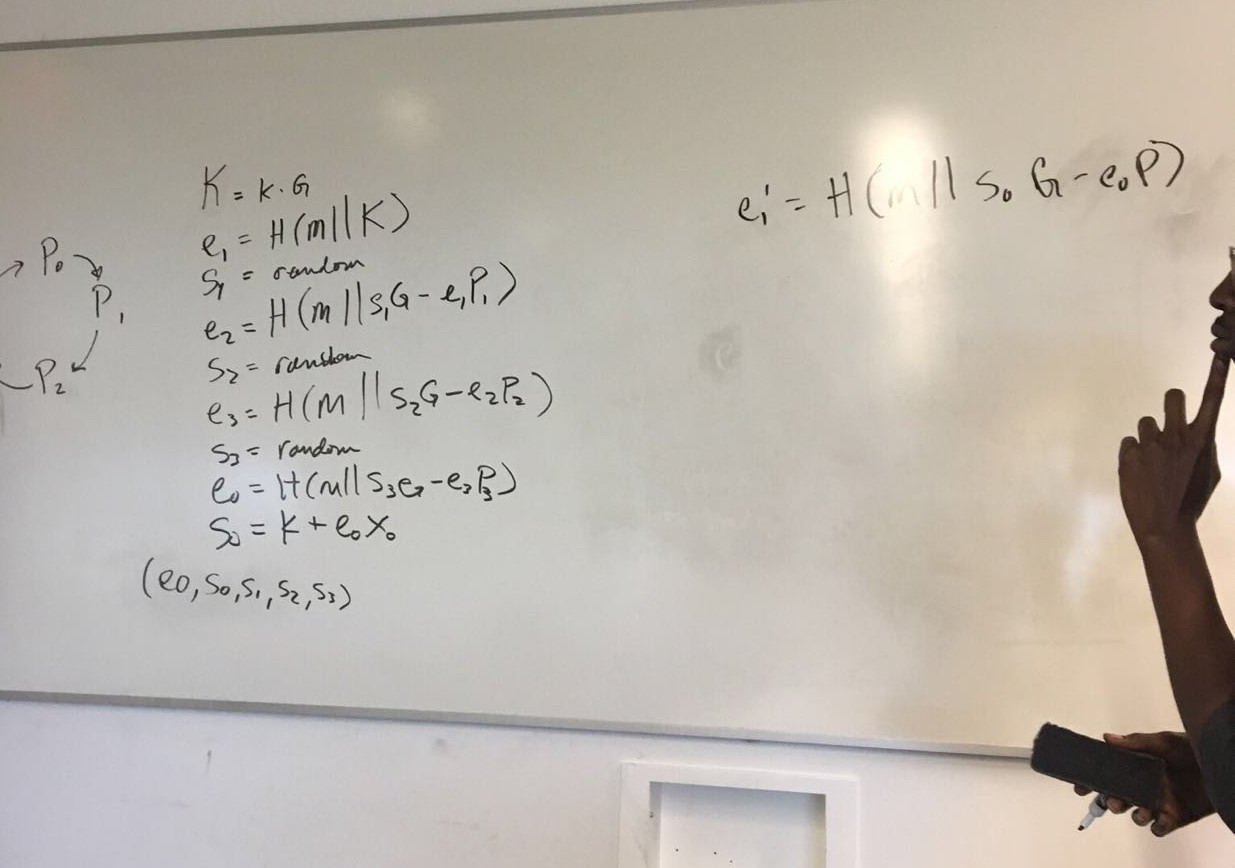 P₀
P₁
P₂
K = k · G
e₁ = H(m||K)
s₁ = random
e₂ = H(m||s₁G - e₁P₁)
s₂ = random
e₃ = H(M||s₂G - e₂P₂)
s₃ = random
e₀ = H(m||s₃G - e₃P₃)
s₀ = k + e₀x₀
(e0, s₀, s₁, s₂, s₃)
e₁' = H(m||s₀G - e₀P)